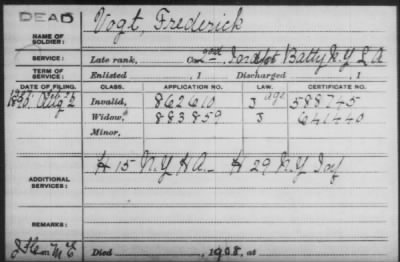 DEAD
NAME OF SOLDIER: Vogt, Frederick
SERVICE: Late rank, Co. Batty N.Y. L A
TERM OF SERVICE: Enlisted , 1 Discharged , 1
DATE OF FILING. CLASS. APPLICATION NO. LAW. CERTIFICATE NO.
Aug 2 Invalid, 862610 J age 588745
Widow, 883859 J 641440
Minor,
ADDITIONAL SERVICES: H 15 N.Y. H A - H 29 N.Y. Inf
REMARKS:
Died , 1908, at